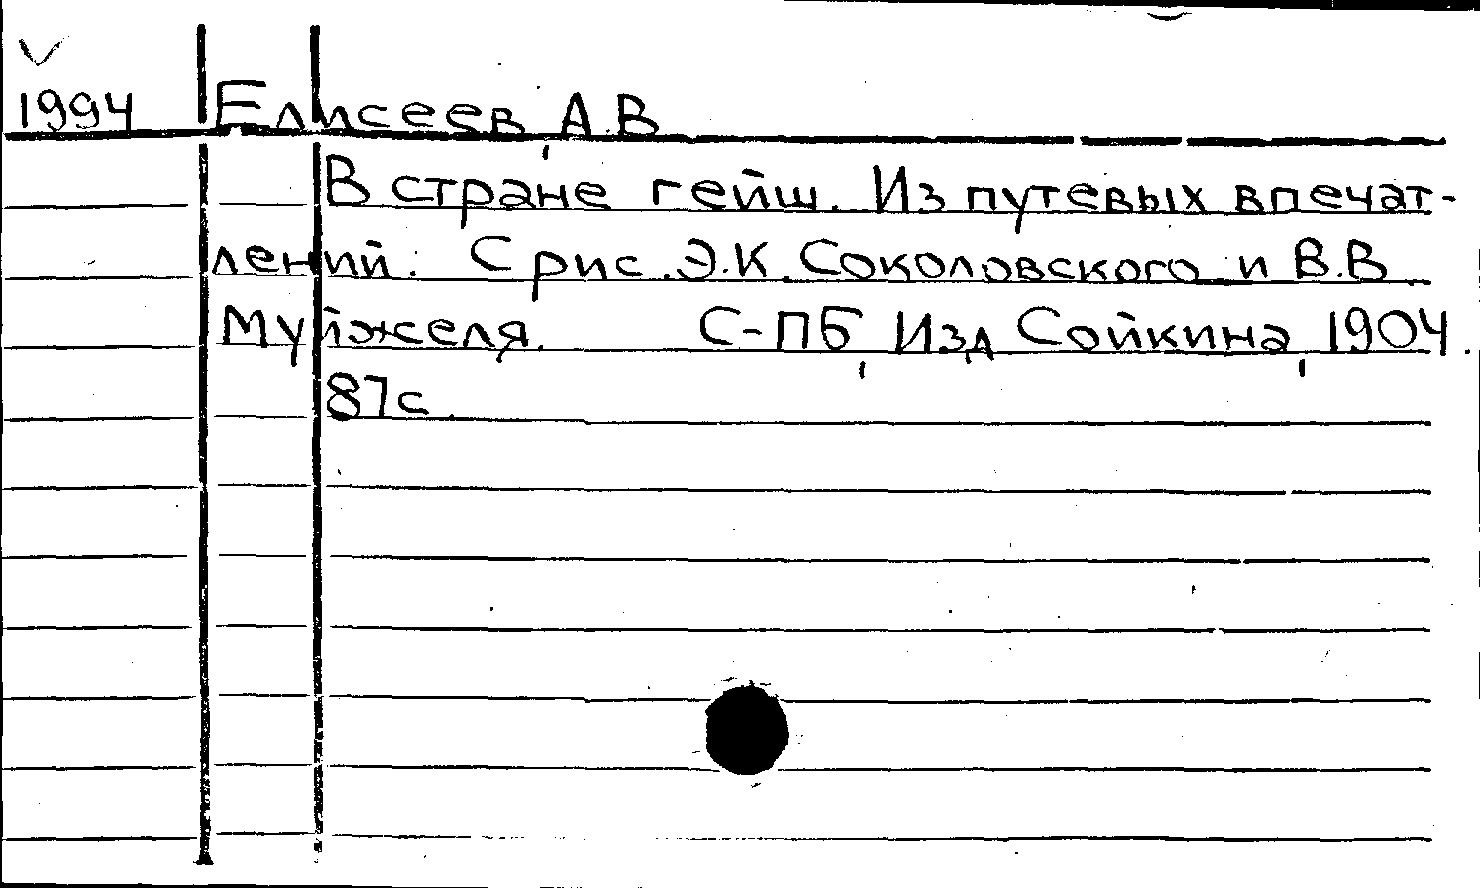 1994 Елисеев, А.В
В стране гейш. Из путевых впечат-
лений. С рис. Э.К. Соколовского и В.В
Муйжеля. С-ПБ, Изд Сойкина, 1904.
87с.